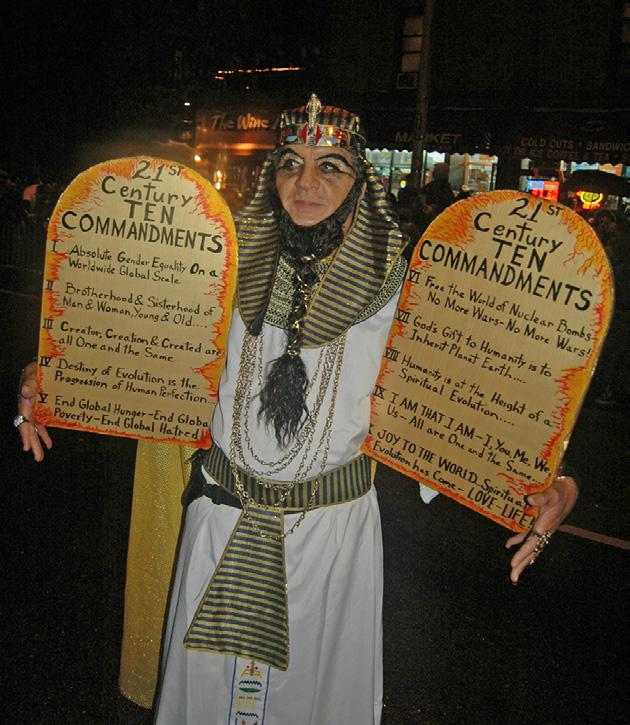 The Wine
MARKET
COLD CUTS · SANDWIC
21ST
Century
TEN
COMMANDMENTS
I Absolute Gender Equality On a
Worldwide Global Scale.
II Brotherhood & Sisterhood of
Man & Woman, Young & Old....
III Creator, Creation & Created are
all One and the Same.
IV Destiny of Evolution is the
Progression of Human Perfection...
V End Global Hunger-End Globa
Poverty-End Global Hatred!
21ST
Century
TEN
COMMANDMENTS
VI Free the World of Nuclear Bombs-
No More Wars-No More Wars!
VII God's Gift to Humanity is to
Inherit Planet Earth....
VIII Humanity is at the Height of a
Spiritual Evolution....
IX I AM THAT I AM-I, You, Me, We,
Us-All are One and the Same....
X JOY TO THE WORLD, Spiritual
Evolution has Come-LOVE-LIFE!